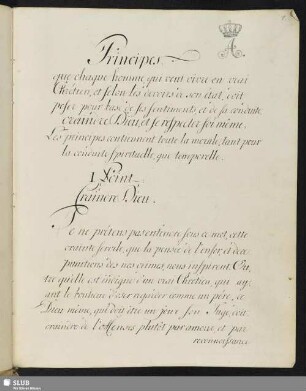 Principes
que chaque homme qui veut vivre en vrai
Chretien, et selon les devoirs de son état, doit
poser pour base de ses sentiments et de sa conduite
craindre Dieu, et se respecter soi même.
Ces principes contiennent toute la morale, tant pour
la conduite spirituelle, que temporelle.
1 Point
Craindre Dieu.
Je ne prétens pas entendre sous ce mot, cette
crainte servile, que la pensée de l'enfer, et des
punitions des nos crimes, nous inspirent. Ou-
tre qu'elle est indigne d'un vrai Chretien, qui ay-
ant le bonheur d'oser regarder comme un père, ce
Dieu même, qui doit être un jour son Juge, doit
craindre de l'offenser plutôt par amour, et par
reconnoissance
SLUB